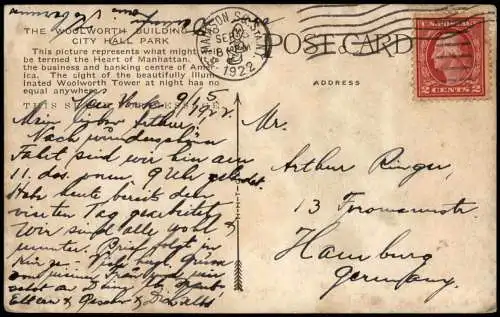 THE WOOLWORTH BUILDING
CITY HALL PARK
This picture represents what might
be termed the Heart of Manhattan.
the business and banking centre of Ame-
rica. The sight of the beautifully Illum-
inated Woolworth Tower at night has no
equal anywhere.
THIS S
POST CARD
ADDRESS
SEP
1922
U.S. POSTAGE
2 CENTS 2
New York 9/15
1922
Mein lieber Arthur
Nach wunderschön
Fahrt sind wir hier am
11. dss. vorm. 9 Uhr gelandet.
Habe heute bereits den
vierten Tag gearbeitet
Wir sind alle wohl &
munter. Brief folgt in
Kürze. Viele Grüsse
von meiner
Eltern &
Mr.
Arthur Ringer
13
Hamburg
Germany.